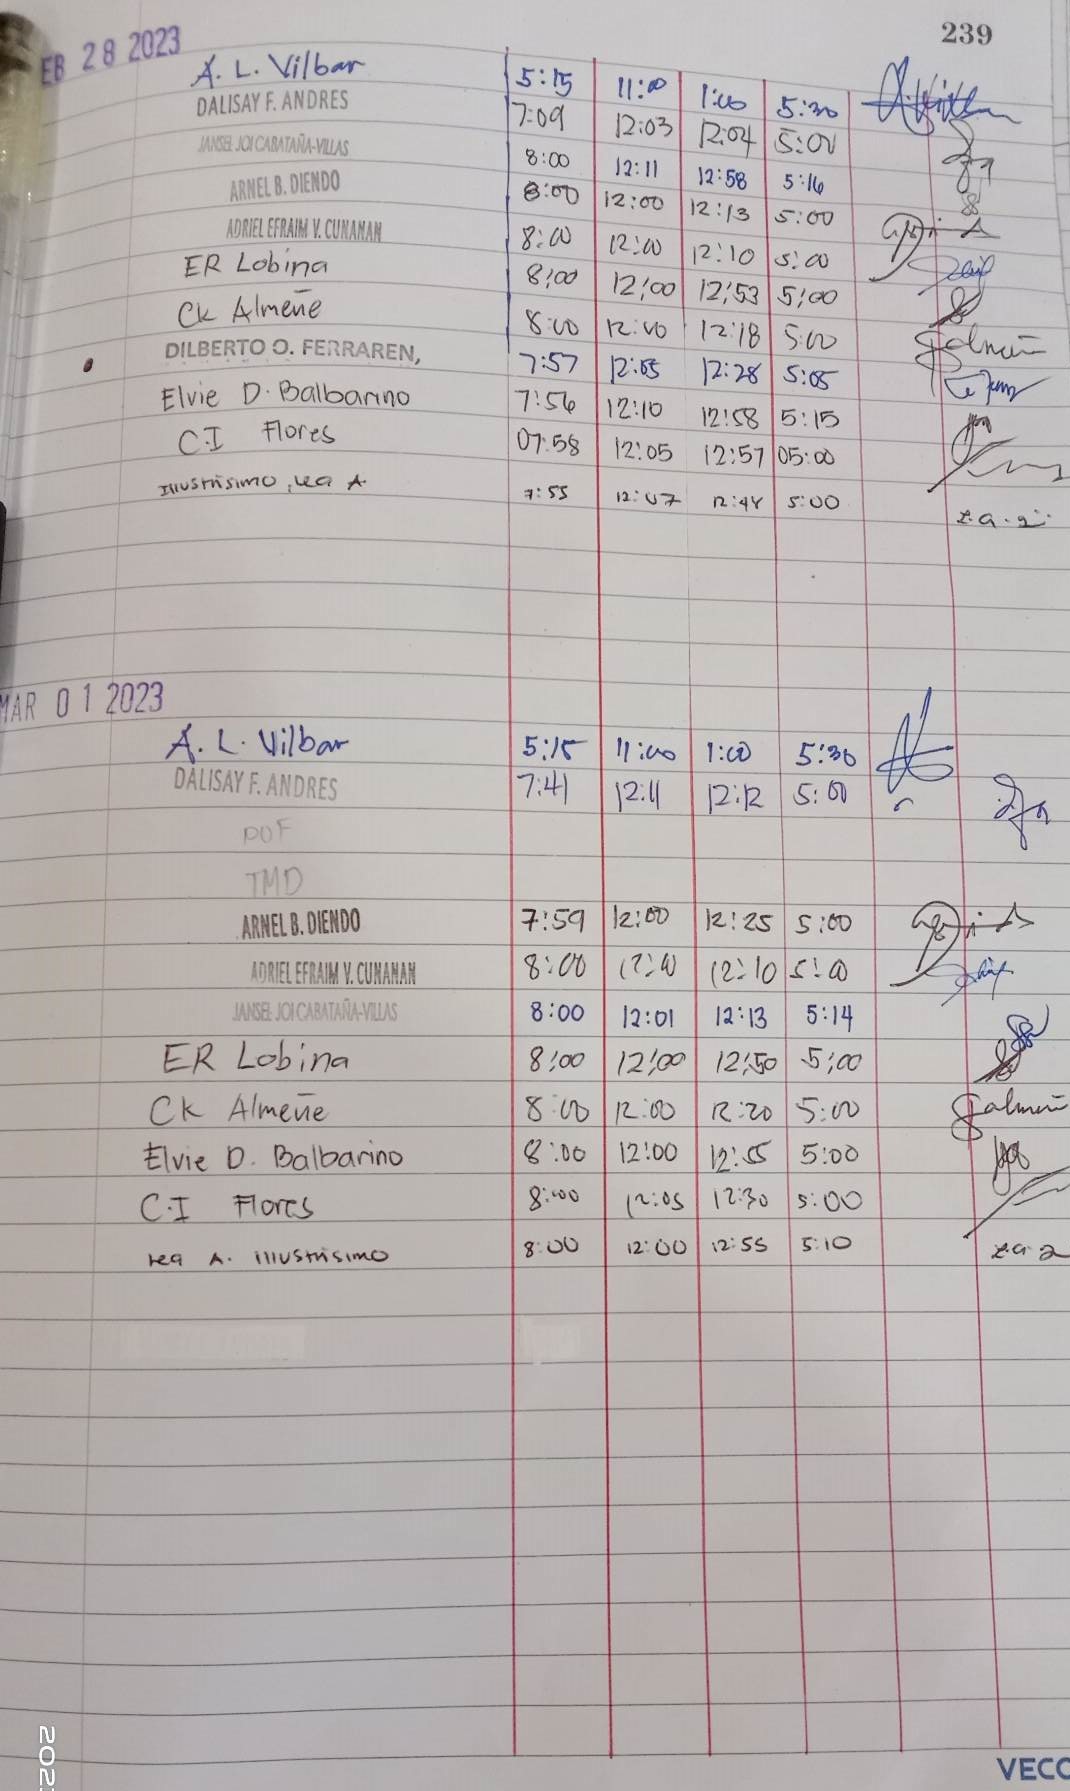 239
EB 28 2023
A. L. Vilbar 5:15 11:00 1:00 5:30
DALISAY F. ANDRES 7:09 12:03 12:04 5:00
JANSEL JOI CABATAÑA-VILLAS 8:00 12:11 12:58 5:16
ARNEL B. DIENDO 8:00 12:00 12:13 5:00
ADRIEL EFRAIM V. CUNANAN 8:00 12:00 12:10 5:00
ER Lobina 8:00 12:00 12:53 5:00
CK Almeñe 8:00 12:00 12:18 5:00
DILBERTO O. FERRAREN, 7:57 12:05 12:28 5:05
Elvie D. Balbarino 7:56 12:10 12:58 5:15
C.I Flores 07:58 12:05 12:57 05:00
Illustrisimo, Lea A 7:55 12:07 12:48 5:00
MAR 01 2023
A. L. Vilbar 5:15 11:00 1:00 5:30
DALISAY F. ANDRES 7:41 12:11 12:12 5:00
DOF
TMD
ARNEL B. DIENDO 7:59 12:00 12:25 5:00
ADRIEL EFRAIM V. CUNANAN 8:00 12:00 12:10 5:00
JANSEL JOI CABATAÑA-VILLAS 8:00 12:01 12:13 5:14
ER Lobina 8:00 12:00 12:50 5:00
CK Almeñe 8:00 12:00 12:20 5:00
Elvie D. Balbarino 8:00 12:00 12:55 5:00
C.I Flores 8:00 12:05 12:30 5:00
Lea A. Illustrisimo 8:00 12:00 12:55 5:10
VECO
202